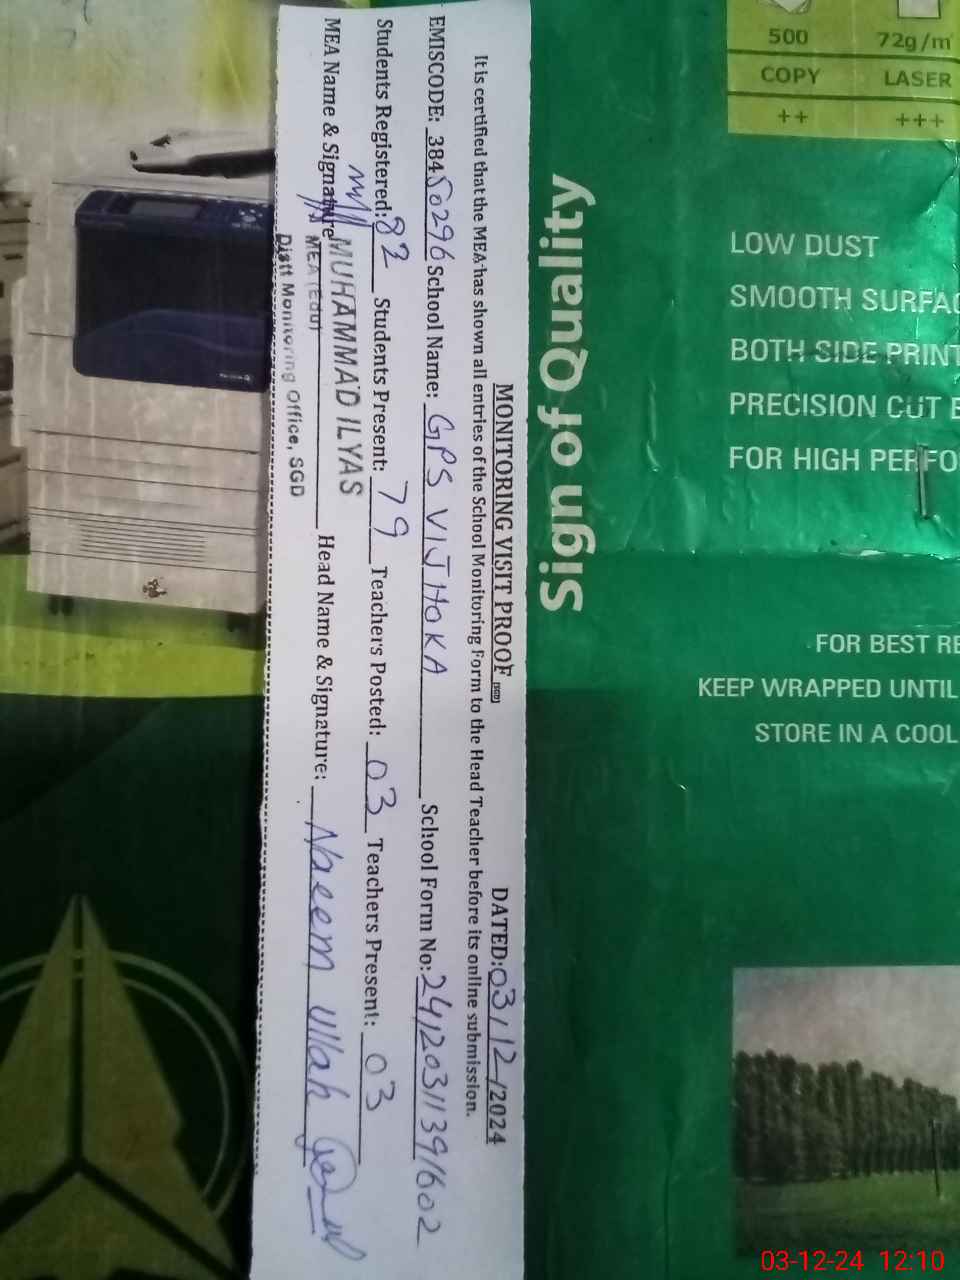 MONITORING VISIT PROOF DATED: 03/12/2024
It is certified that the MEA has shown all entries of the School Monitoring Form to the Head Teacher before its online submission.
EMISCODE: 38450296 School Name: GPS VIJHOKA School Form No: 24120311391602
Students Registered: 82 Students Present: 79 Teachers Posted: 03 Teachers Present: 03
MEA Name & Signature MUHAMMAD ILYAS Head Name & Signature: Naeem Ullah
MEA (Edu)
Distt Monitoring Office, SGD
Sign of Quality
500 72g/m
COPY LASER
++ +++
LOW DUST
SMOOTH SURFAC
BOTH SIDE PRINT
PRECISION CUT E
FOR HIGH PERFO
FOR BEST RE
KEEP WRAPPED UNTIL
STORE IN A COOL
03-12-24 12:10